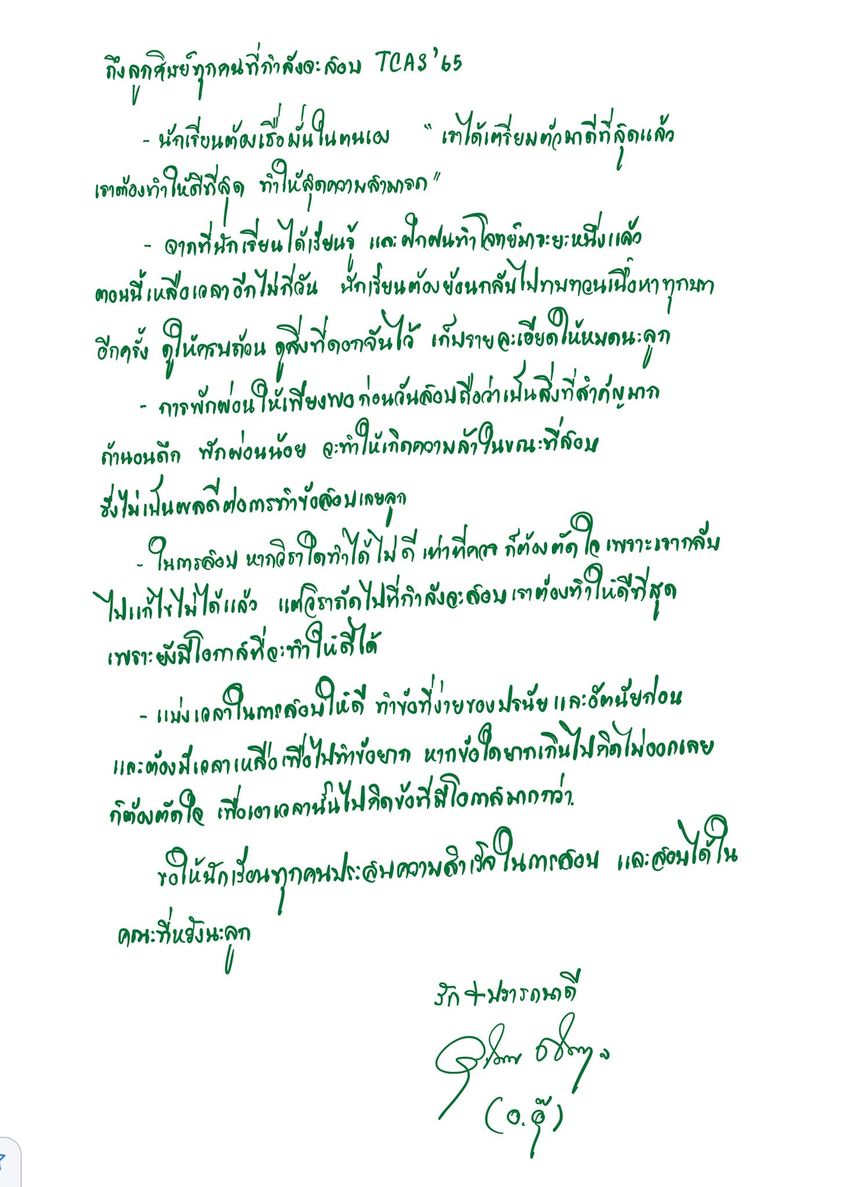 ถึงลูกศิษย์ทุกคนที่กำลังจะสอบ TCAS'65
- นักเรียนต้องเชื่อมั่นในตนเอง "เราได้เตรียมตัวมาดีที่สุดแล้ว
เราต้องทำให้ดีที่สุด ทำให้สุดความสามารถ"
- จากที่นักเรียนได้เรียนรู้ และฝึกฝนทำโจทย์มาระยะหนึ่งแล้ว
ตอนนี้เหลือเวลาอีกไม่กี่วัน นักเรียนต้องย้อนกลับไปทบทวนเนื้อหาทุกบท
อีกครั้ง ดูให้ครบถ้วน ดูสิ่งที่ดอกจันไว้ เก็บรายละเอียดให้หมดนะลูก
- การพักผ่อนให้เพียงพอก่อนวันสอบถือว่าเป็นสิ่งที่สำคัญมาก
ถ้านอนดึก พักผ่อนน้อย จะทำให้เกิดความล้าในขณะที่สอบ
ซึ่งไม่เป็นผลดีต่อการทำข้อสอบเลยลูก
- ในการสอบ หากวิชาใดทำได้ไม่ดี เท่าที่ควร ก็ต้องตัดใจ เพราะเรากลับ
ไปแก้ไขไม่ได้แล้ว แต่วิชาถัดไปที่กำลังจะสอบเราต้องทำให้ดีที่สุด
เพราะยังมีโอกาสที่จะทำให้ดีได้
- แบ่งเวลาในการสอบให้ดี ทำข้อที่ง่ายของปรนัย และอัตนัยก่อน
และต้องมีเวลาเหลือเพื่อไปทำข้อยาก หากข้อใดยากเกินไปคิดไม่ออกเลย
ก็ต้องตัดใจ เพื่อเอาเวลานั้นไปคิดข้อที่มีโอกาสมากกว่า.
ขอให้นักเรียนทุกคนประสบความสำเร็จในการสอบ และสอบได้ใน
คณะที่หวังนะลูก
รัก + ปรารถนาดี
(อ.อุ๊)